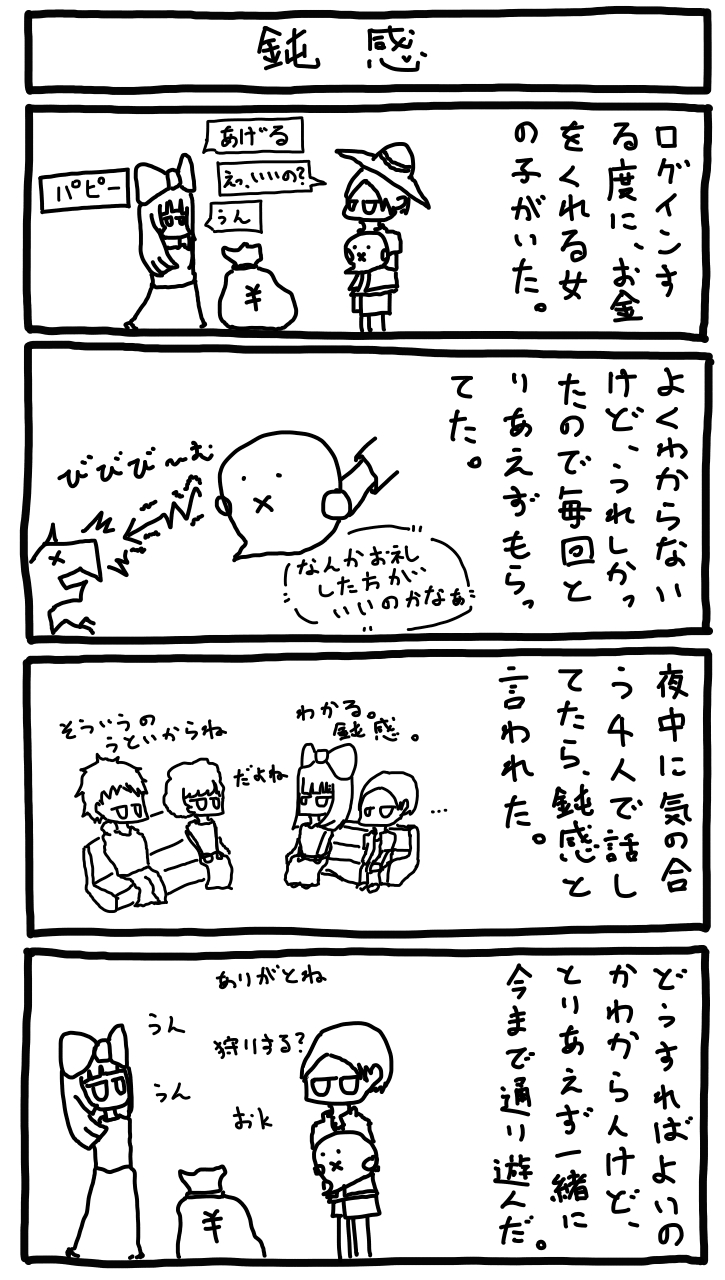 鈍感
ログインす
る度に、お金
をくれる女
の子がいた。
あげる
えっ、いいの?
うん
パピー
¥
よくわからない
けど、うれしかっ
たので毎回と
りあえずもらっ
てた。
びびび〜む
なんかお礼
した方が
いいのかなぁ
夜中に気の合
う4人で話し
てたら、鈍感と
言われた。
わかる。
鈍感。
…
だよね
そういうの
うといからね
どうすればよいの
かわからんけど、
とりあえず一緒に
今まで通り遊んだ。
ありがとね
うん
狩りする?
うん
おk
¥